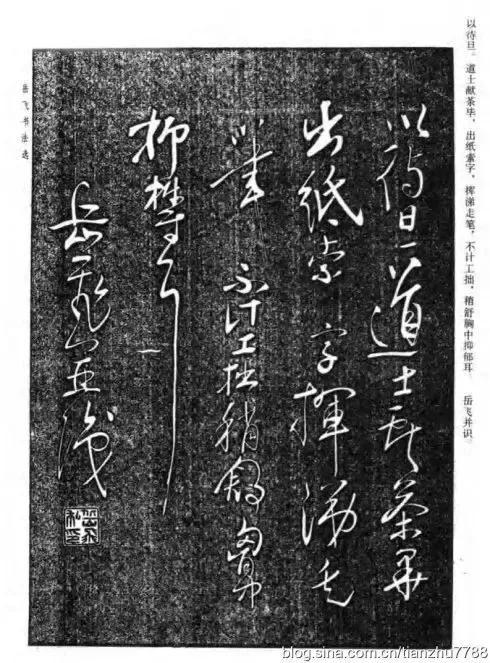 以待旦。道士献茶毕，出纸索字，挥涕走笔，不计工拙，稍舒胸中抑郁耳　岳飞并识
以待旦道士献茶毕
出纸索字挥涕走
笔不计工拙稍舒胸中
抑郁耳
岳飞并识
岳飞书法选
blog.sina.com.cn/tianzhu7788